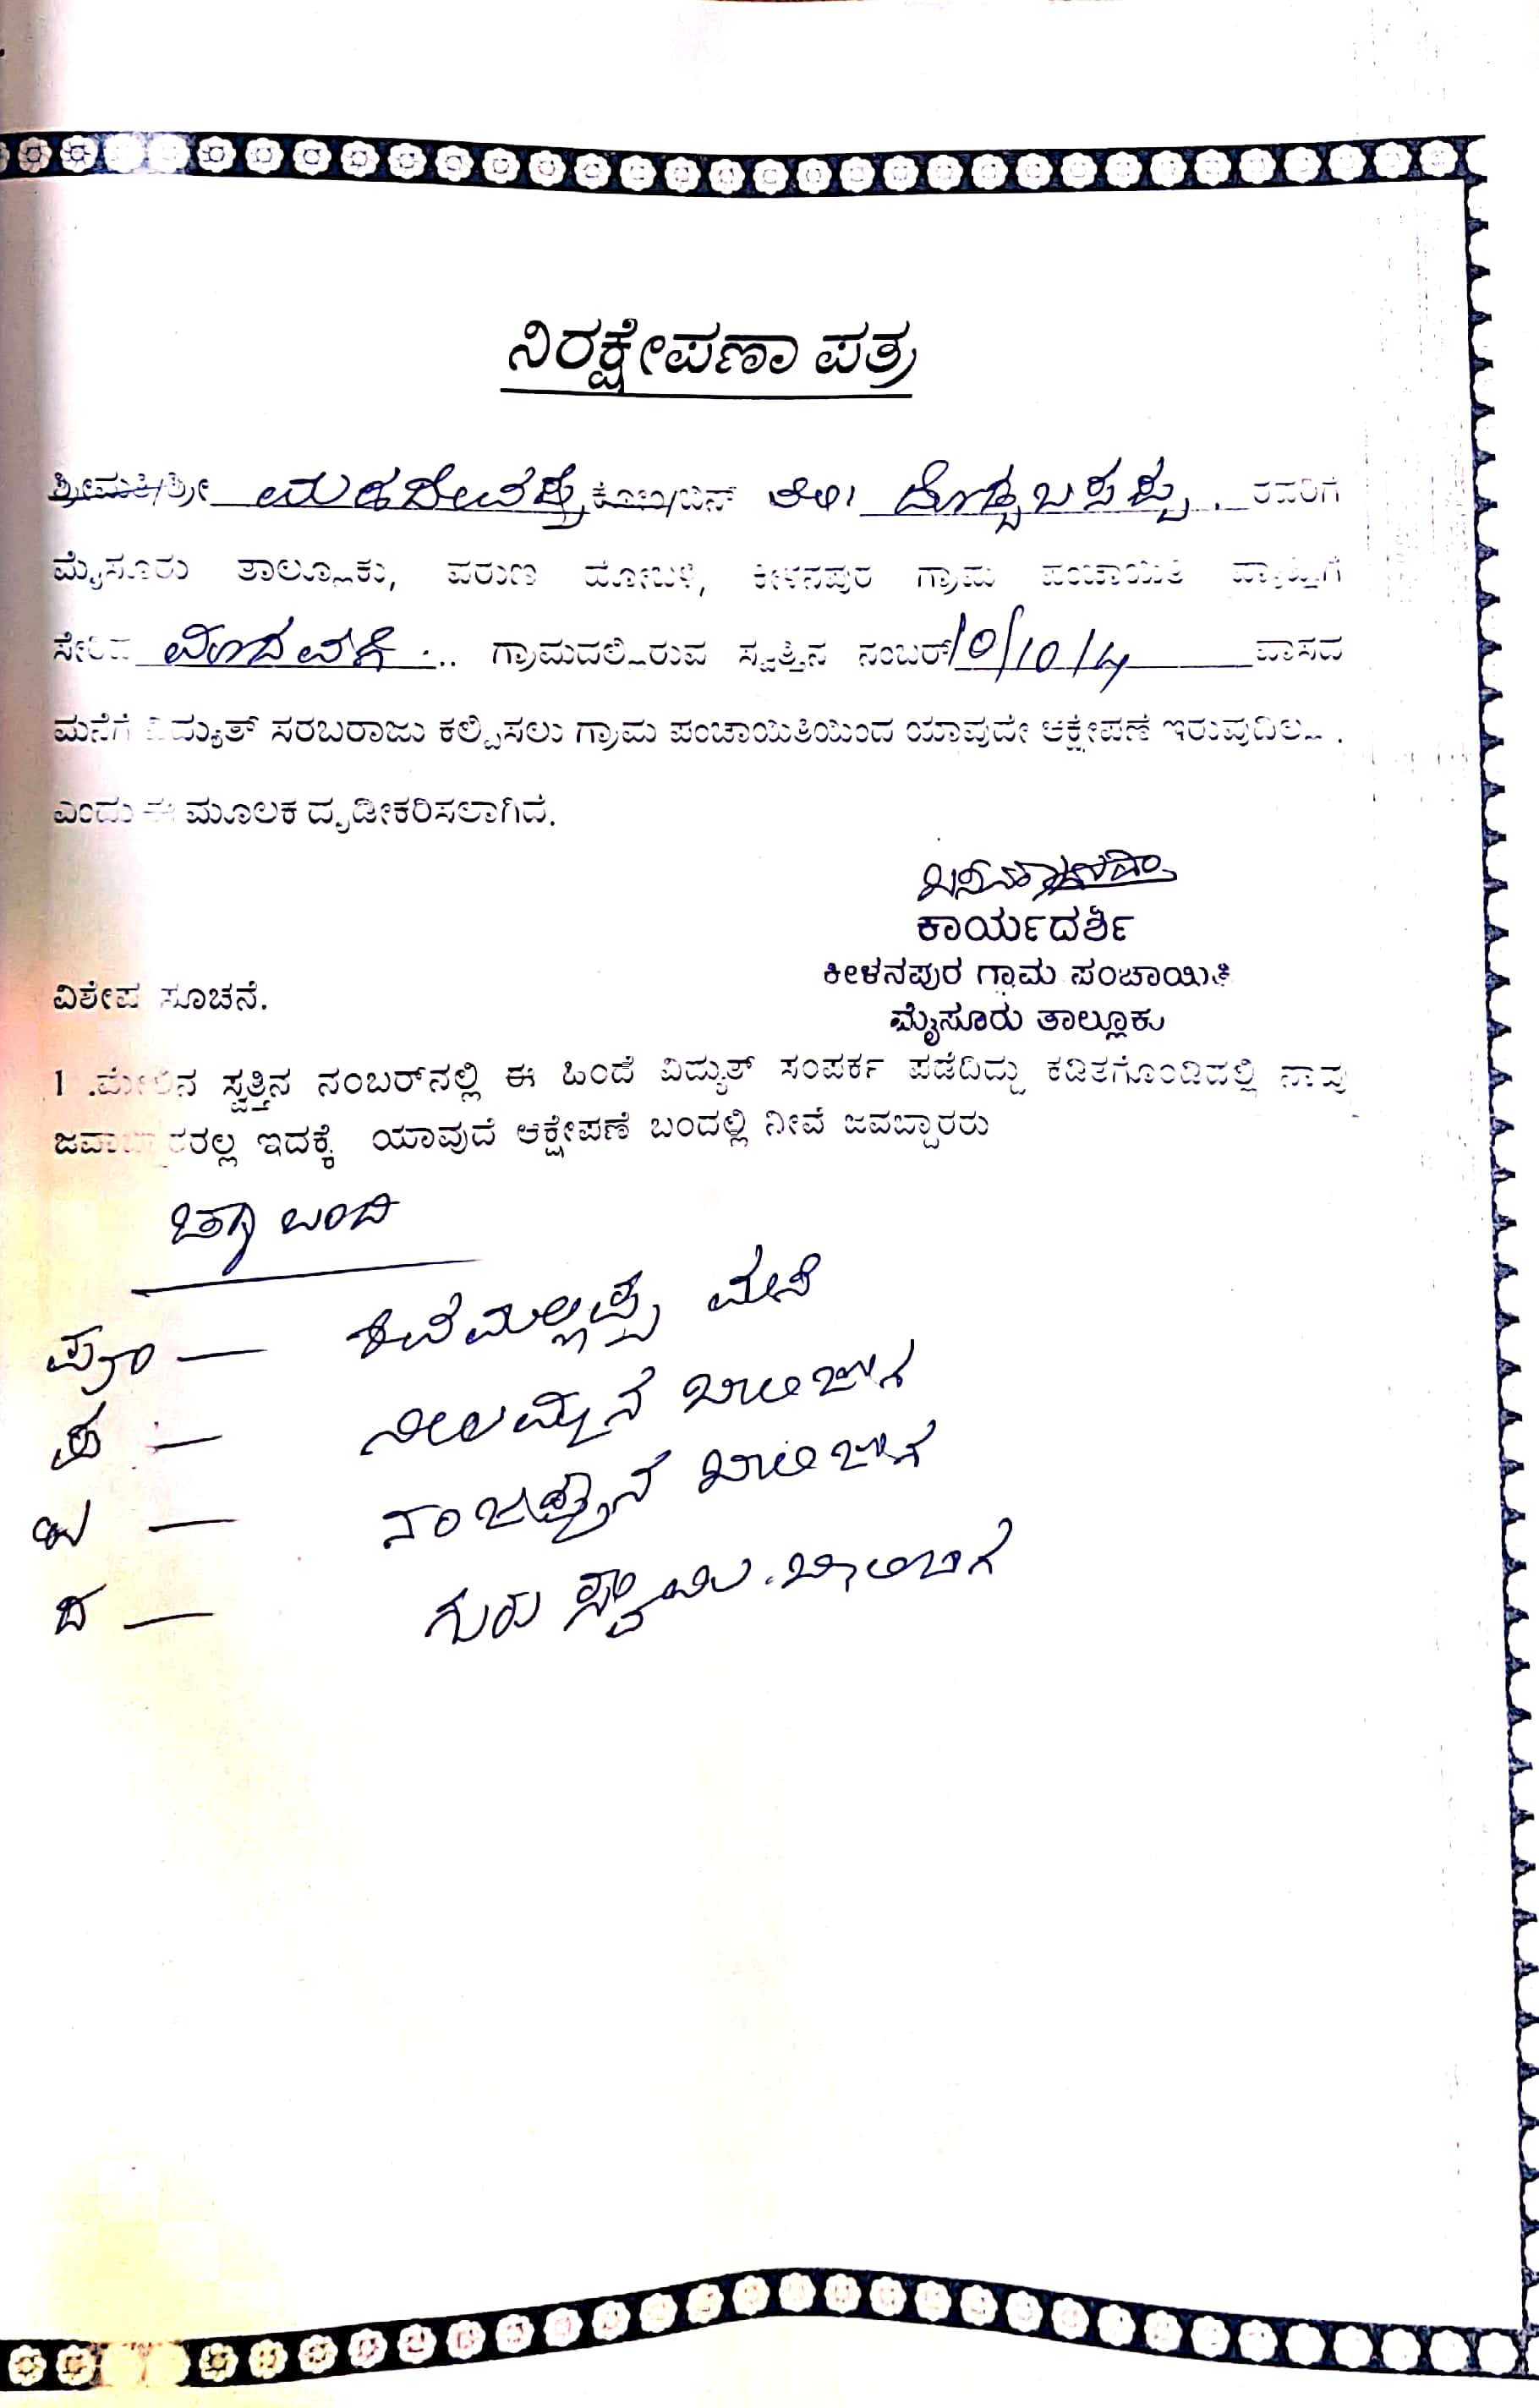 ನಿರಕ್ಷೇಪಣಾ ಪತ್ರ
ಶ್ರೀಮತಿ/ಶ್ರೀ ಮಹದೇವಪ್ಪ ಕೋಂ/ಬಿನ್ ಲೇ॥ ದೊಡ್ಡಬಸಪ್ಪ . ರವರಿಗೆ
ಮೈಸೂರು ತಾಲ್ಲೂಕು, ವರುಣ ಹೋಬಳಿ, ಕೀಳನಪುರ ಗ್ರಾಮ ಪಂಚಾಯಿತಿ ವ್ಯಾಪ್ತಿಗೆ
ಸೇರಿದ ಗ್ರಾಮದಲ್ಲಿರುವ ಸ್ವತ್ತಿನ ನಂಬರ್ 10/10/4 ವಾಸದ
ಮನೆಗೆ ವಿದ್ಯುತ್ ಸರಬರಾಜು ಕಲ್ಪಿಸಲು ಗ್ರಾಮ ಪಂಚಾಯಿತಿಯಿಂದ ಯಾವುದೇ ಆಕ್ಷೇಪಣೆ ಇರುವುದಿಲ್ಲ .
ಎಂದು ಈ ಮೂಲಕ ದೃಡೀಕರಿಸಲಾಗಿದೆ.
ಕಾರ್ಯದರ್ಶಿ
ಕೀಳನಪುರ ಗ್ರಾಮ ಪಂಚಾಯಿತಿ
ಮೈಸೂರು ತಾಲ್ಲೂಕು
ವಿಶೇಷ ಸೂಚನೆ.
1 .ಮೇಲಿನ ಸ್ವತ್ತಿನ ನಂಬರ್‌ನಲ್ಲಿ ಈ ಹಿಂದೆ ವಿದ್ಯುತ್ ಸಂಪರ್ಕ ಪಡೆದಿದ್ದು ಕಡಿತಗೊಂಡಿದಲ್ಲಿ ನಾವು
ಜವಾಬ್ದಾರರಲ್ಲ ಇದಕ್ಕೆ ಯಾವುದೆ ಆಕ್ಷೇಪಣೆ ಬಂದಲ್ಲಿ ನೀವೆ ಜವಬ್ದಾರರು
ಚಕ್ಕು ಬಂದಿ
ಪೂ — ಶಿವಮಲ್ಲಪ್ಪ ಮನೆ
ಪ — ನೀಲಮ್ಮನ ಖಾಲಿ ಜಾಗ
ಉ — ನಂಜಪ್ಪನ ಖಾಲಿ ಜಾಗ
ದ — ಗುರು ಸ್ವಾಮಿ . ಖಾಲಿಜಾಗ